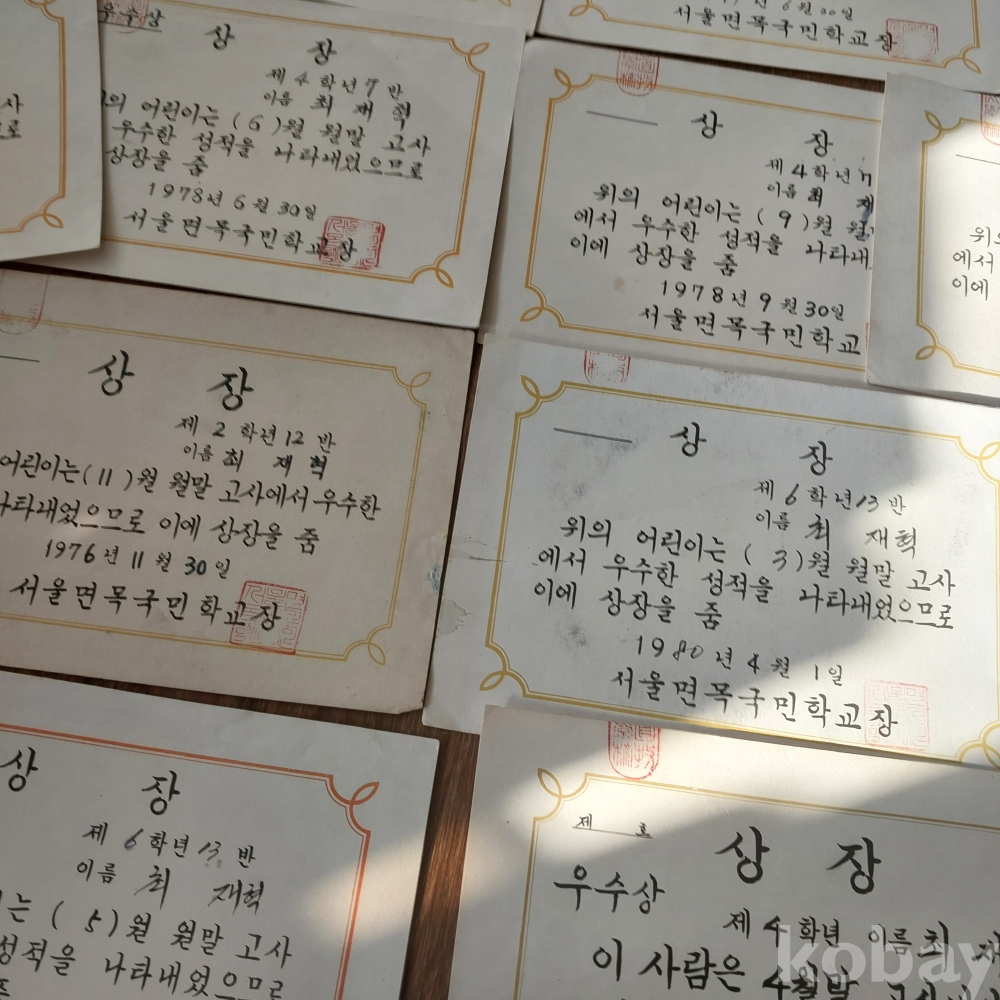 사
로
우수상
상 장
제 4 학년 7 반
이름 최 재 혁
의 어린이는 ( 6 )월 월말 고사
우수한 성적을 나타내었으므로
상장을 줌
1978년 6월 30일
서울면목국민학교장
6월 30일
서울면목국민학교장
상 장
제 4 학년
이름 최 재
위의 어린이는 ( 9 )월 월
에서 우수한 성적을 나타내
이에 상장을 줌
1978년 9월 30일
서울면목국민학교
위의
에서
이에
상 장
제 2 학년 12 반
이름 최 재 혁
어린이는 ( 11 )월 월말 고사에서 우수한
나타내었으므로 이에 상장을 줌
1976년 11월 30일
서울면목국민학교장
상 장
제 6 학년 13 반
이름 최 재혁
위의 어린이는 ( 3 )월 월말 고사
에서 우수한 성적을 나타내었으므로
이에 상장을 줌
1980년 4월 1일
서울면목국민학교장
상 장
제 6 학년 13 반
이름 최 재혁
는 ( 5 )월 월말 고사
성적을 나타내었으므로
제 호
상 장
우수상
제 4 학년 이름 최 재
이 사람은 4월말 고사
kobay